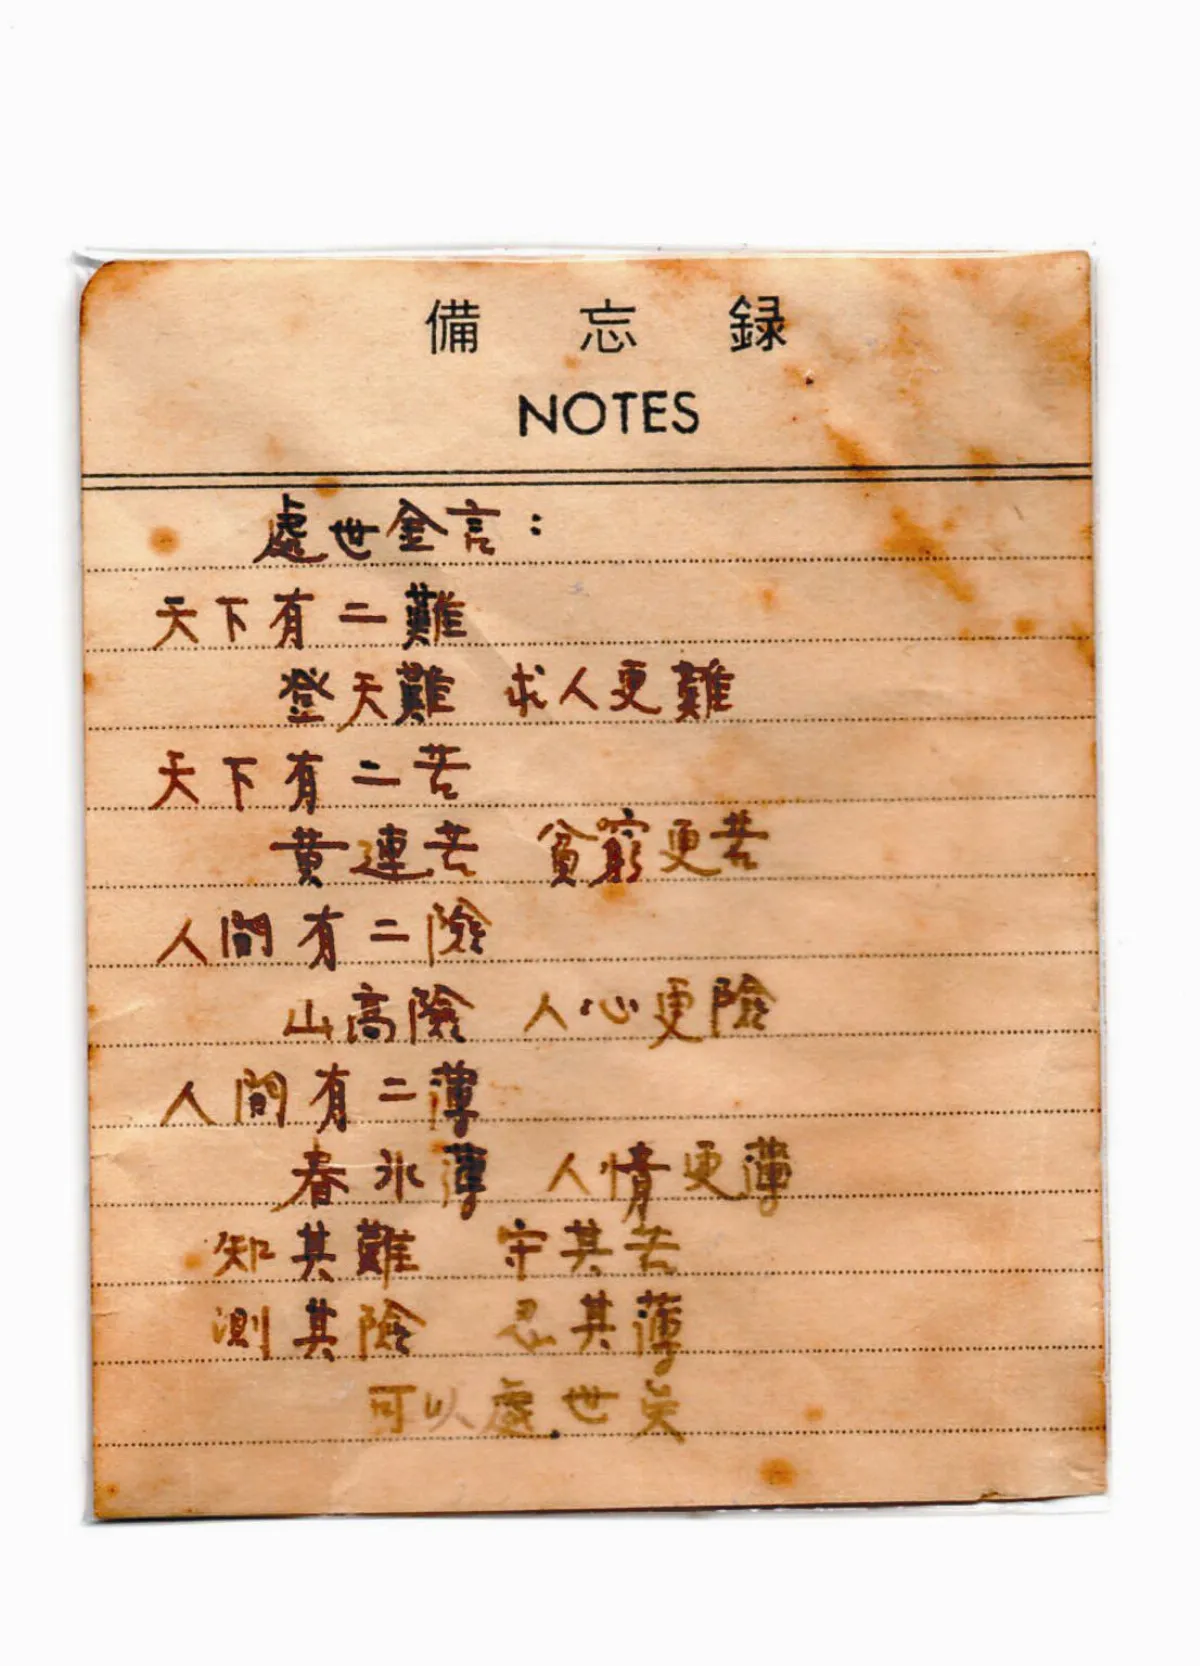 備忘録
NOTES
處世金言：
天下有二難
登天難 求人更難
天下有二苦
黃連苦 貧窮更苦
人間有二險
山高險 人心更險
人間有二薄
春氷薄 人情更薄
知其難 守其苦
測其險 忍其薄
可以處世矣